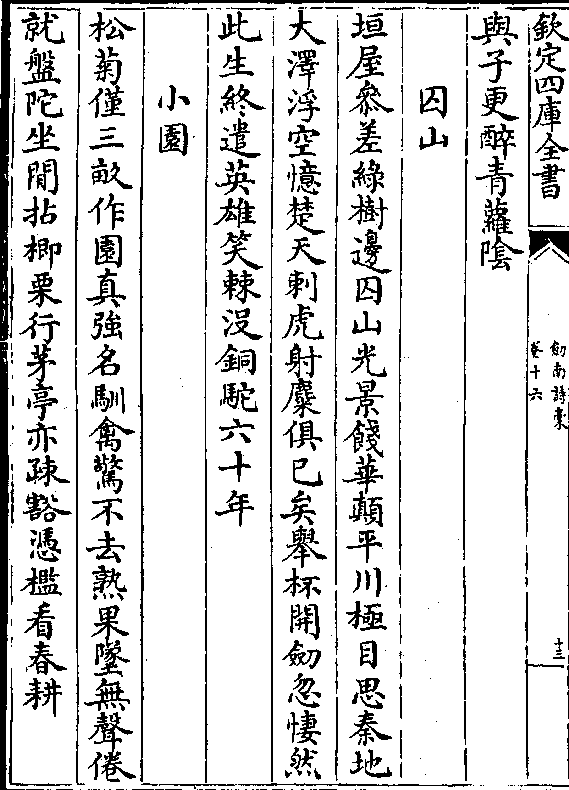 欽定四庫全書
劒南詩稾
卷十六
十三
與子更醉青蘿陰
囚山
垣屋參差綠樹邊囚山光景餞華顛平川極目思秦地
大澤浮空憶楚天刺虎射麋俱已矣舉杯開劒忽悽然
此生終遣英雄笑棘沒銅駝六十年
小園
松菊僅三畝作園真強名馴禽驚不去熟果墜無聲倦
就盤陀坐閒拈楖栗行茅亭亦疎豁憑檻看春耕